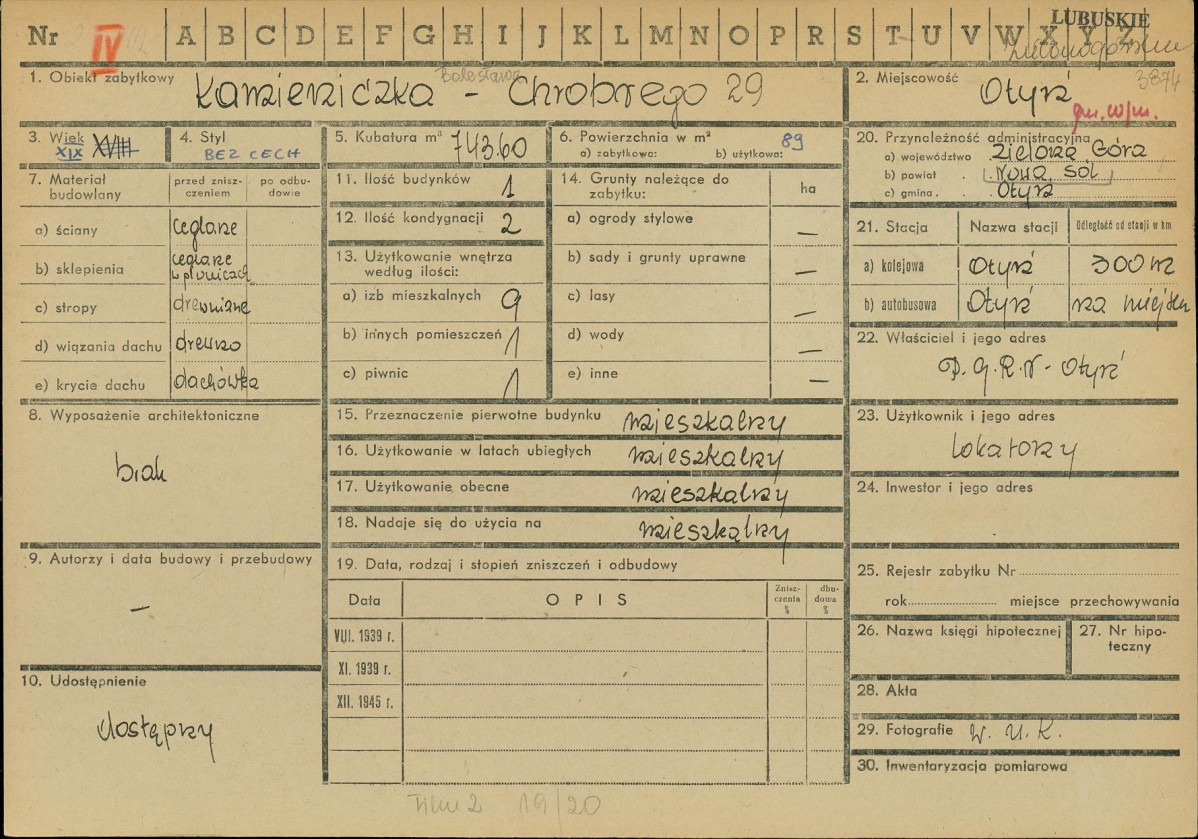 LUBUSKIE
Nr IV A B C D E F G H I J K L M N O P R S T U V W X Y Z
3874
1. Obiekt zabytkowy Kamieniczka - Bolesława Chrobrego 29
2. Miejscowość Otyń
gm. w/m.
3. Wiek XIX XVIII
4. Styl BEZ CECH
5. Kubatura m³ 743.60
6. Powierzchnia w m² 89
a) zabytkowa: b) użytkowa:
7. Materiał budowlany
przed znisz-
czeniem
po odbu-
dowie
a) ściany ceglane
b) sklepienia ceglane
w piwnicach
c) stropy drewniane
d) wiązania dachu drewno
e) krycie dachu dachówka
8. Wyposażenie architektoniczne
brak
9. Autorzy i data budowy i przebudowy
—
10. Udostępnienie
dostępny
11. Ilość budynków 1
12. Ilość kondygnacji 2
13. Użytkowanie wnętrza
według ilości:
a) izb mieszkalnych 9
b) innych pomieszczeń 1
c) piwnic 1
14. Grunty należące do
zabytku: ha
a) ogrody stylowe —
b) sady i grunty uprawne —
c) lasy —
d) wody —
e) inne —
15. Przeznaczenie pierwotne budynku mieszkalny
16. Użytkowanie w latach ubiegłych mieszkalny
17. Użytkowanie obecne mieszkalny
18. Nadaje się do użycia na mieszkalny
19. Data, rodzaj i stopień zniszczeń i odbudowy
Data OPIS
Znisz-
czenia
%
dbu-
dowa
%
VIII. 1939 r.
XI. 1939 r.
XII. 1945 r.
20. Przynależność administracyjna
a) województwo Zielona Góra
b) powiat . Nowa Sól
c) gmina . Otyń
21. Stacja Nazwa stacji Odległość od stacji w km
a) kolejowa Otyń 300 m
b) autobusowa Otyń na miejscu
22. Właściciel i jego adres
P.G.R.N - Otyń
23. Użytkownik i jego adres
lokatorzy
24. Inwestor i jego adres
25. Rejestr zabytku Nr
rok miejsce przechowywania
26. Nazwa księgi hipotecznej
27. Nr hipo-
teczny
28. Akta
29. Fotografie W. U. K.
30. Inwentaryzacja pomiarowa
Film 2 19/20